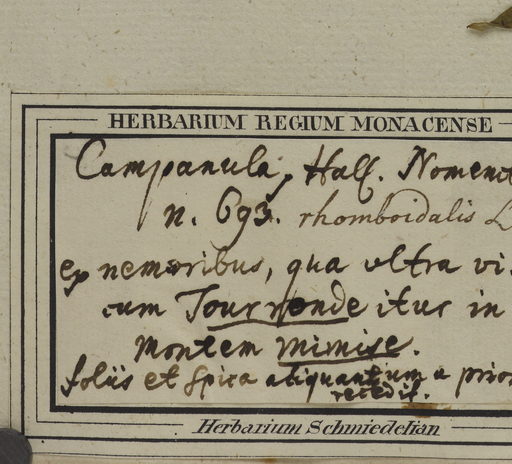 HERBARIUM REGIUM MONACENSE
Campanula, Hall. Nomencl
n. 693. rhomboidalis L
ex nemoribus, qua ultra vi
cum Tourronde itur in
montem mimise.
foliis et spica aliquantum a prior
recedit.
Herbarium Schmiedelian